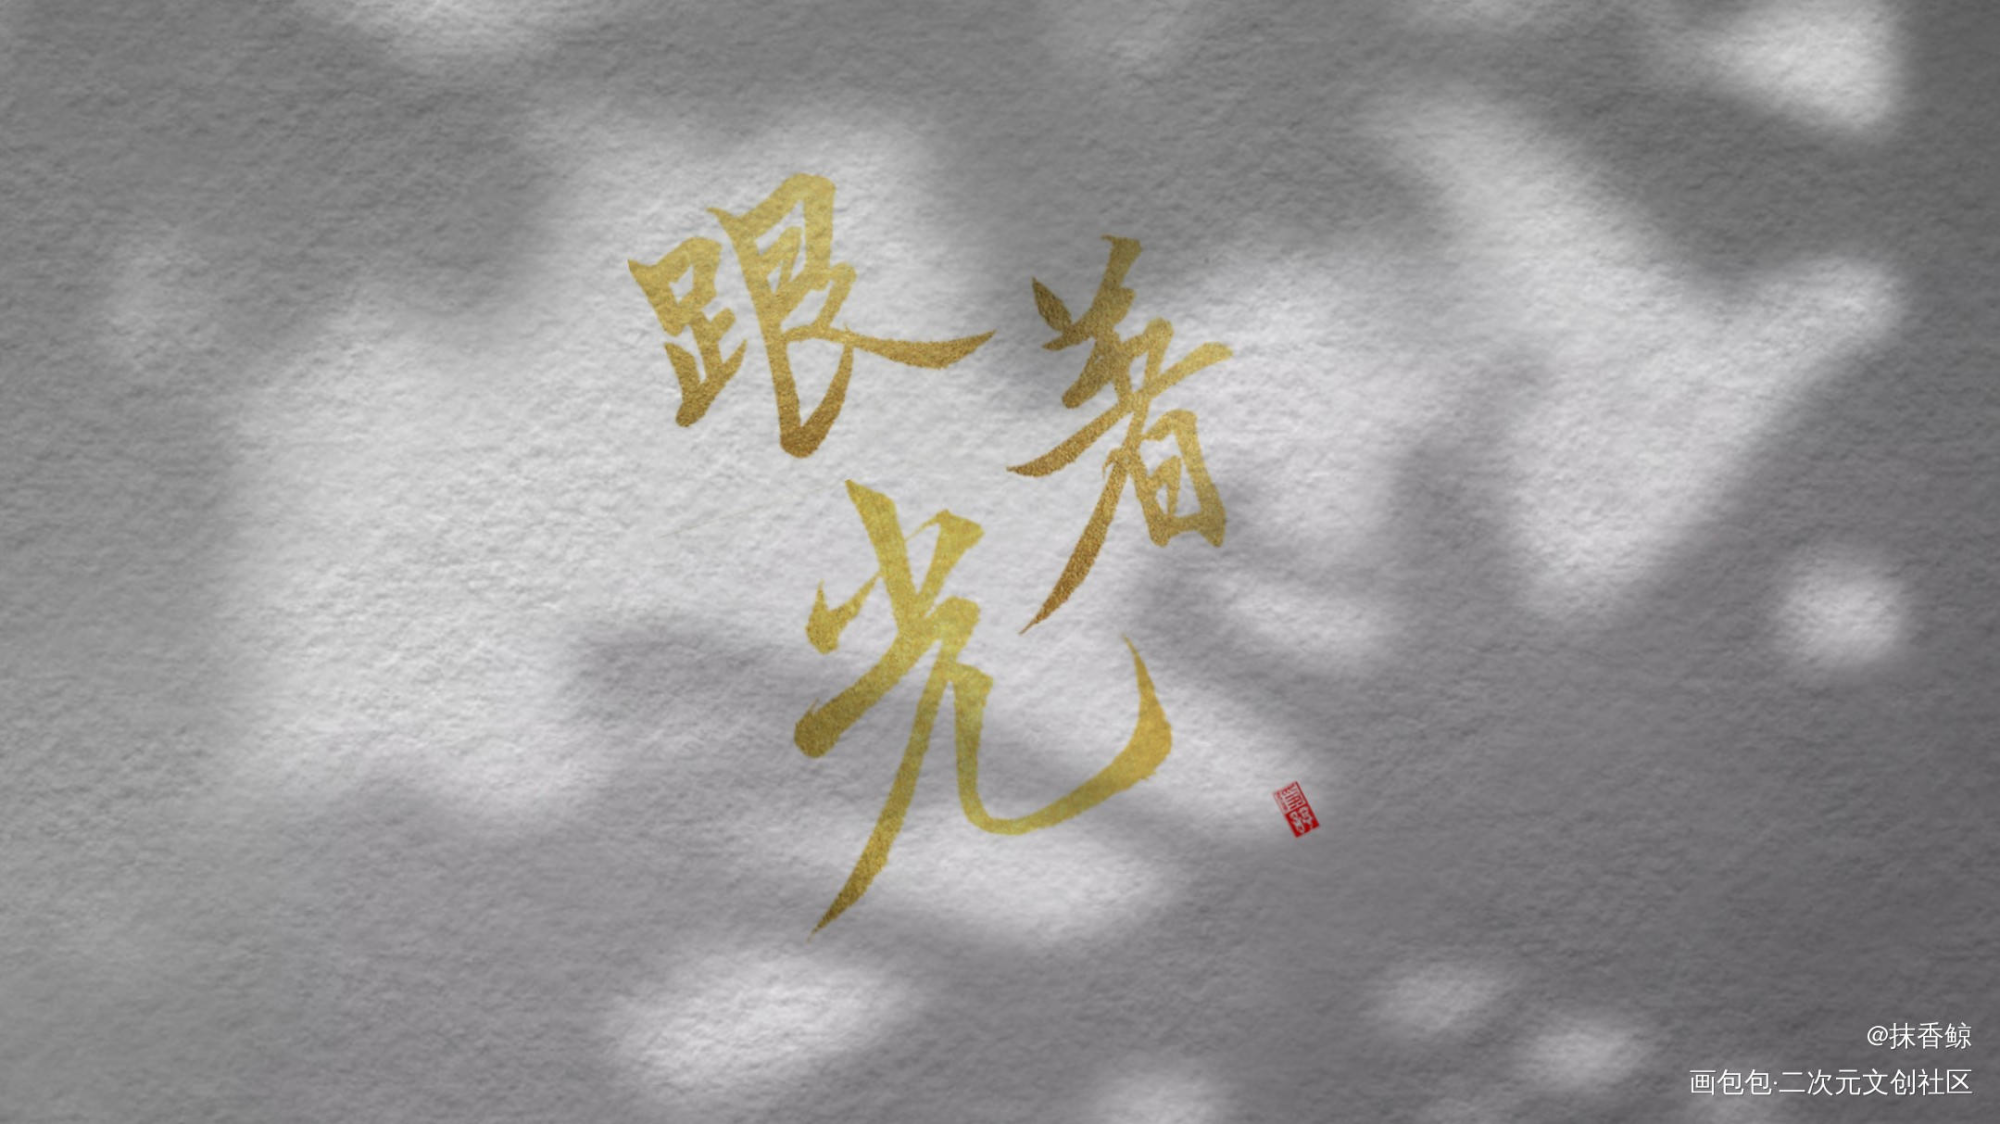 跟着
光
@抹香鲸
画包包·二次元文创社区